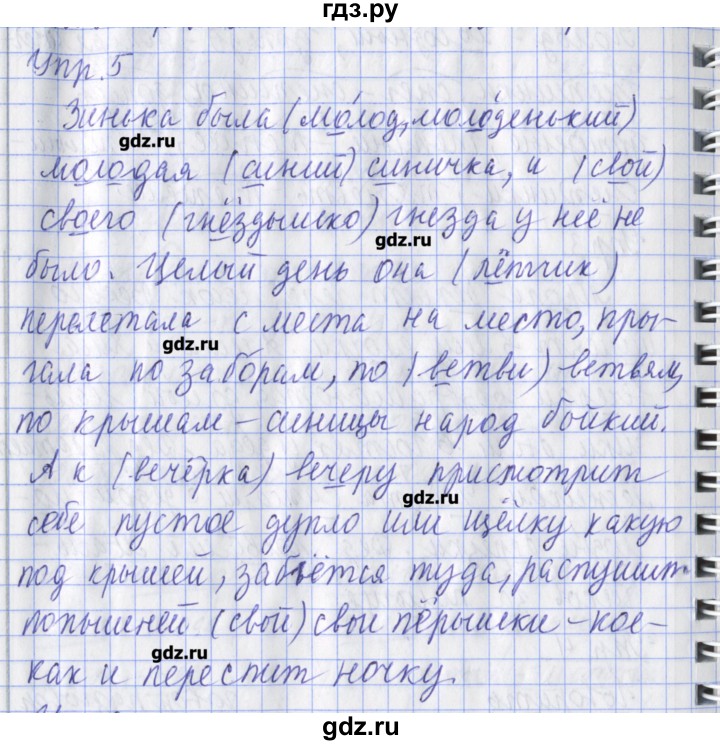 гдз.ру
Упр. 5
Зинька была (молод, молоденький)
gdz.ru
молодая (синий) синичка, и (свой)
своего (гнёздышко) гнезда у неё не
gdz.ru
было. Целый день она (лётчик)
перелетала с места на место, пры-
gdz.ru
гала по заборам, по (ветви) ветвям,
по крышам – синицы народ бойкий.
А к (вечёрка) вечеру присмотрит
gdz.ru
себе пустое дупло или щёлку какую
под крышей, забьётся туда, распушит
попышней (свой) свои пёрышки – кое-
gdz.ru
как и переспит ночку.
gdz.ru